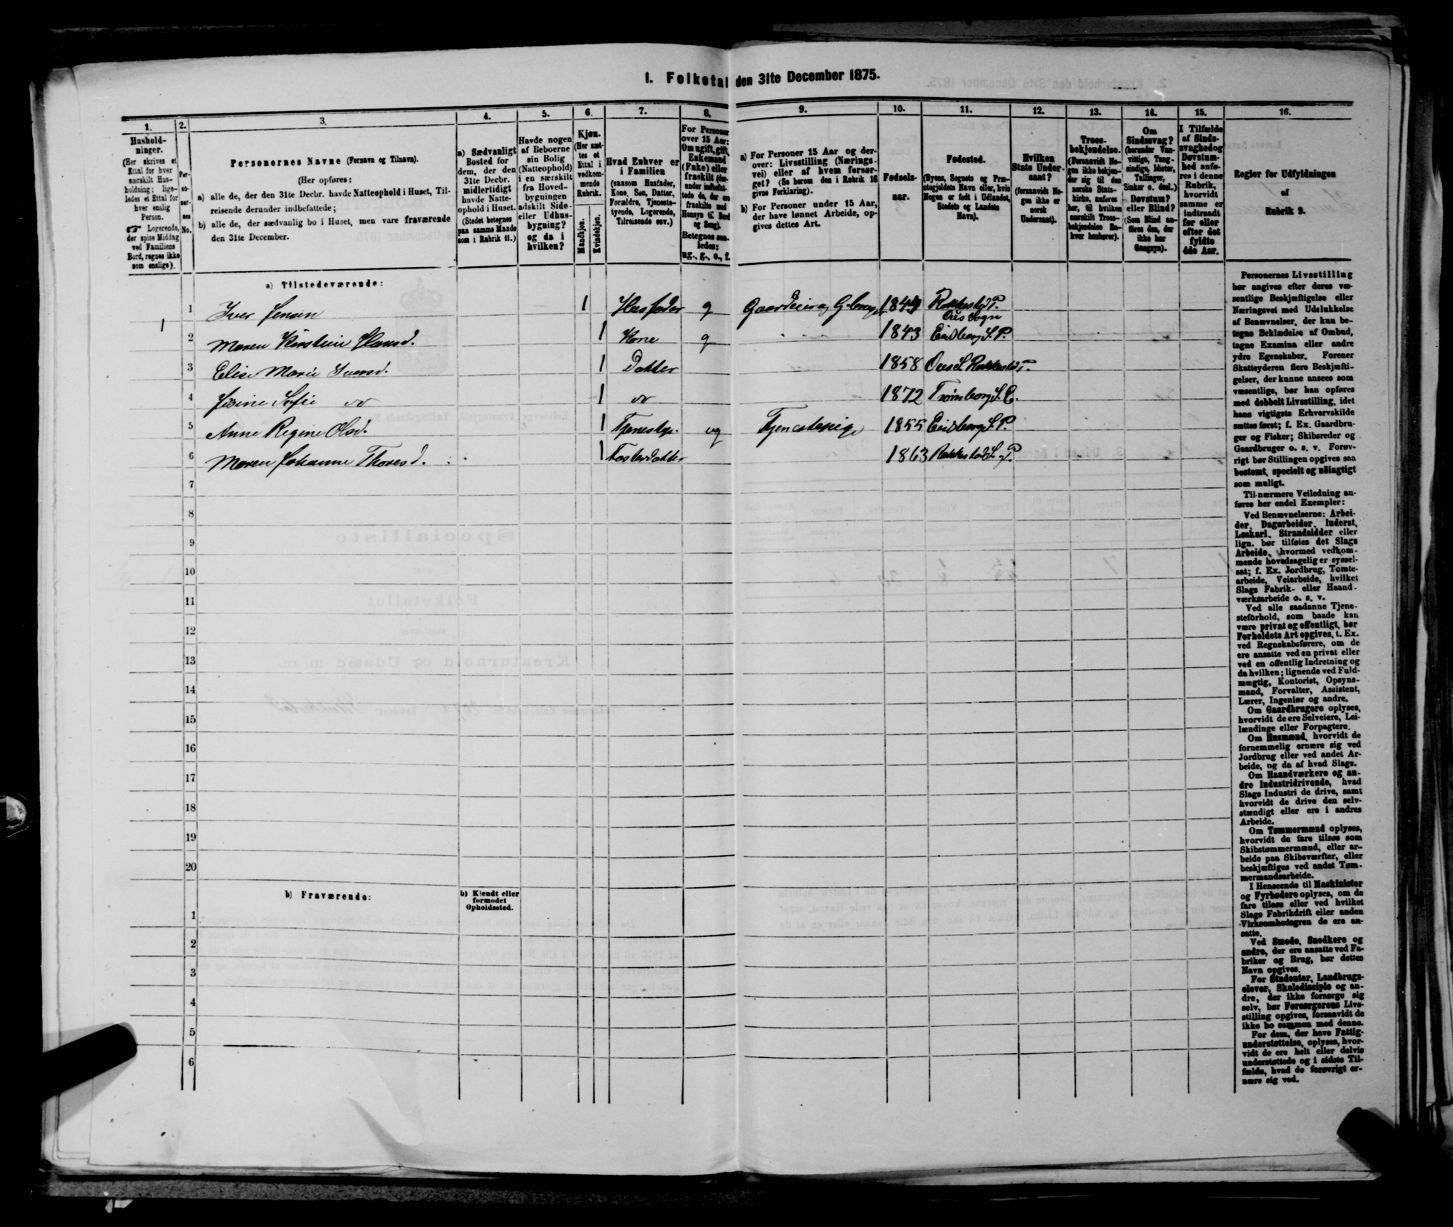 I. Folketal den 31te December 1875.
1.
2.
3.
4.
5.
6.
7.
8.
9.
10.
11.
12.
13.
14.
15.
16.
Hushold-
ninger.
(Her skrives et
Ettal for hver
særskilt Hus-
holdning; lige-
ledes et Ettal for
hver enslig
Person.
☞ Logerende,
der spise Middag
ved Familiens
Bord, regnes ikke
som enslige).
Per-
No.
Personernes Navne (Fornavn og Tilnavn).
(Her opføres:
a) alle de, der den 31te Decbr. havde Natteophold i Huset, Til-
reisende derunder indbefattede;
b) alle de, der sædvanlig bo i Huset, men vare fraværende
den 31te December.
a) Sædvanligt
Bosted for
dem, der den
31te Decbr.
midlertidigt
havde Natte-
ophold i Huset.
(Stedet betegnes
paa samme Maade
som i Rubrik 11.)
Havde nogen
af Beboerne
sin Bolig
(Natteophold)
i en særskilt
fra Hoved-
bygningen
adskilt Side-
eller Udhus-
bygning?
og da i
hvilken?
Kjøn.
(Her sæt-
tes et
Ettal i
vedkom-
mende
Rubrik.
Mandkjøn.
Kvindekjøn.
Hvad Enhver er
i Familien
(saasom Husfader,
Kone, Søn, Datter,
Forældre, Tjeneste-
tyende, Logerende,
Tilreisende osv.)
For Personer
over 15 Aar:
Om ugift, gift,
Enkemand
(Enke) eller
fraskilt
Betegnes saa-
ledes:
ug., g., e., f.
a) For Personer 15 Aar og der-
over: Livsstilling (Nærings-
vei) eller af hvem forsør-
get? (Se herom den i Rubrik 16
givne Forklaring).
b) For Personer under 15 Aar,
der have lønnet Arbeide, op-
gives dettes Art.
Fødsels-
aar.
Fødested.
(Byens, Sognets og Præ-
stegjeldets Navn eller, hvis
Nogen er født i Udlandet,
Stedets og Landets
Navn).
Hvilken
Stats Under-
saat?
(forsaavidt No-
gen ikke er
norsk
Undersaat).
Troes-
bekjendelse.
(Forsaavidt No-
gen ikke bekjen-
der sig til den
norske Stats-
kirke, anføres
her, til hvilken
særskilt Troes-
bekjendelse En-
hver henhører).
Om
Sindssvag?
(herunder Van-
vittige, Tung-
sindige, Idioter,
Tullinger,
Sinker o. desl.)
Døvstum?
eller Blind?
(Som Blind an-
føres den, der
ikke har
Gangsyn).
I Tilfælde
af Sinds-
svaghed og
Døvstum-
hed anfø-
res i denne
Rubrik,
hvorvidt
samme er
indtraadt
før eller
efter det
fyldte
4de Aar.
Regler for Udfyldningen
af
Rubrik 9.
a) Tilstedeværende:
1 1 Iver Jensen 1 Husfader g Gaardeier og Gbruger 1844 Rakkestad P. Os Sogn
2 Maren Kirstine Hansd. 1 Kone g 1843 Eidsberg S. P.
3 Elise Marie Iversd. 1 Datter 1858 Os S. Rakkestad P.
4 Sofie do 1 do 1872 Trømborg S. E.
5 Anne Regine Olsd. 1 Tjenestp. ug Tjenestepige 1855 Eidsberg S. P.
6 Maren Johanne Thoresd. 1 Fosterdatter 1863 Rakkestad S. og P.
7
8
9
10
11
12
13
14
15
16
17
18
19
20
b) Fraværende:
b) Kjendt eller
formodet
Opholdssted.
1
2
3
4
5
6
Personernes Livsstilling
bør angives efter deres væ-
sentlige Beskjæftigelse eller
Næringsvei med Udelukkelse
af Benævnelser, der kun be-
tegne Beklædelse af Ombud,
tagne Examina eller andre
ydre Egenskaber. Forener
Skatteyderen flere Beskjæfti-
gelser, der kunne ansees som
væsentlige, bør han opgives
med dobbelt Livsstilling, idet
hans vigtigste Erhvervskilde
sættes først; f. Ex. Gaardbru-
ger og Fisker; Skibsreder og
Gaardbruger o. s. v. Forøv-
rigt bør Stillingen opgives saa
bestemt, specielt og nøiagtigt
som muligt.
Til nærmere Veiledning an-
føres her endel Exempler:
Ved Benævnelserne: Arbei-
der, Dagarbeider, Inderst,
Løskarl, Strandsidder eller
lign. bør tilføies det Slags
Arbeide, hvormed vedkom-
mende hovedsagelig er syssel-
sat; f. Ex. Jordbrug, Tomte-
arbeide, Veiarbeide, hvilket
Slags Fabrik- eller Haand-
værksarbeide o. s. v.
Ved alle saadanne Tjene-
steforhold, som baade kan
være privat og offentligt, bør
Forholdets Art opgives, t. Ex.
ved Regnskabsførere, om de
ere ansatte ved en privat eller
ved en offentlig Indretning og
da hvilken; lignende ved Fuld-
mægtig, Kontorist, Opsyns-
mand, Forvalter, Assistent,
Lærer, Ingeniør og andre.
Om Gaardbrugere oplyses,
hvorvidt de ere Selveiere, Lei-
lændinge eller Forpagtere.
Om Husmænd, hvorvidt de
fornemmelig ernære sig ved
Jordbrug eller ved andet Ar-
beide, og da af hvad Slags.
Om Haandværkere og an-
dre Industridrivende, hvad
Slags Industri de drive, samt
hvorvidt de drive den selv-
stændigt eller ere i andres
Arbeide.
Om Tømmermænd oplyses,
hvorvidt de fare tilsøs som
Skibstømmermænd, eller ar-
beide paa Skibsværfter, eller
beskjæftiges ved andet Tøm-
mermandsarbeide.
I Henseende til Maskinister
og Fyrbødere oplyses, om de
fare tilsøs eller ved hvilket
Slags Fabrikdrift eller anden
Virksomhedsgren de ere an-
satte.
Ved Smede, Snedkere og
andre, der ere ansatte ved Fa-
briker og Brug, bør dettes
Navn opgives.
For Studenter, Landbrugs-
elever, Skoledisciple og an-
dre, der ikke forsørge sig
selv, bør Forsørgerens Livs-
stilling opgives, forsaavidt de
ikke bo sammen med denne.
For dem, der have Fattig-
understøttelse, oplyses, hvor-
vidt de ere helt eller delvis
understøttede og i sidste Til-
fælde, hvad de forøvrigt er-
nære sig ved.